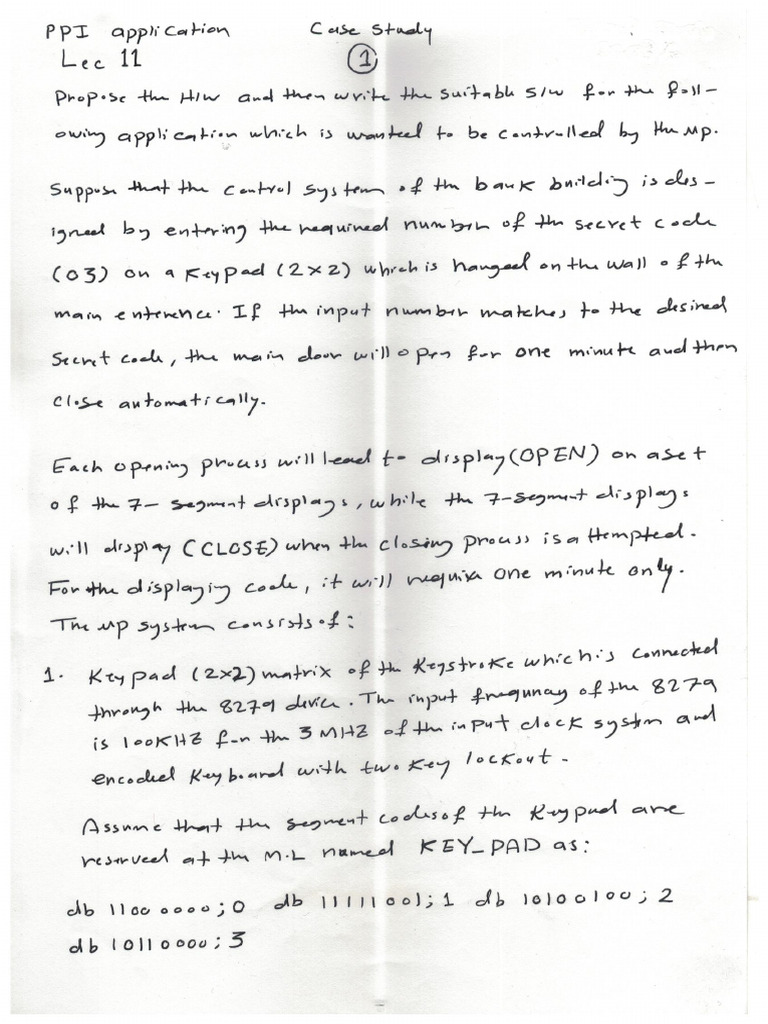 PPI application Case Study
Lec 11 1
Propose the H/W and then write the suitable S/W for the foll-
owing application which is wanted to be controlled by the μp.
Suppose that the control system of the bank building is des-
igned by entering the required number of the secret code
(03) on a keypad (2x2) which is hanged on the wall of the
main enterence. If the input number matches to the desired
secret code, the main door will open for one minute and then
close automatically.
Each opening process will lead to display (OPEN) on a set
of the 7-segment displays, while the 7-segment displays
will display (CLOSE) when the closing process is attempted.
For the displaying code, it will require one minute only.
The μp system consists of:
1. Keypad (2x2) matrix of the Keystroke which is connected
through the 8279 device. The input frequnay of the 8279
is 100KHZ for the 3 MHZ of the input clock system and
encoded Keyboard with two key lockout.
Assume that the segment codes of the Keypad are
reserved at the M.L named KEY_PAD as:
db 1100 0000; 0 db 11111001; 1 db 10100100; 2
db 10110000; 3